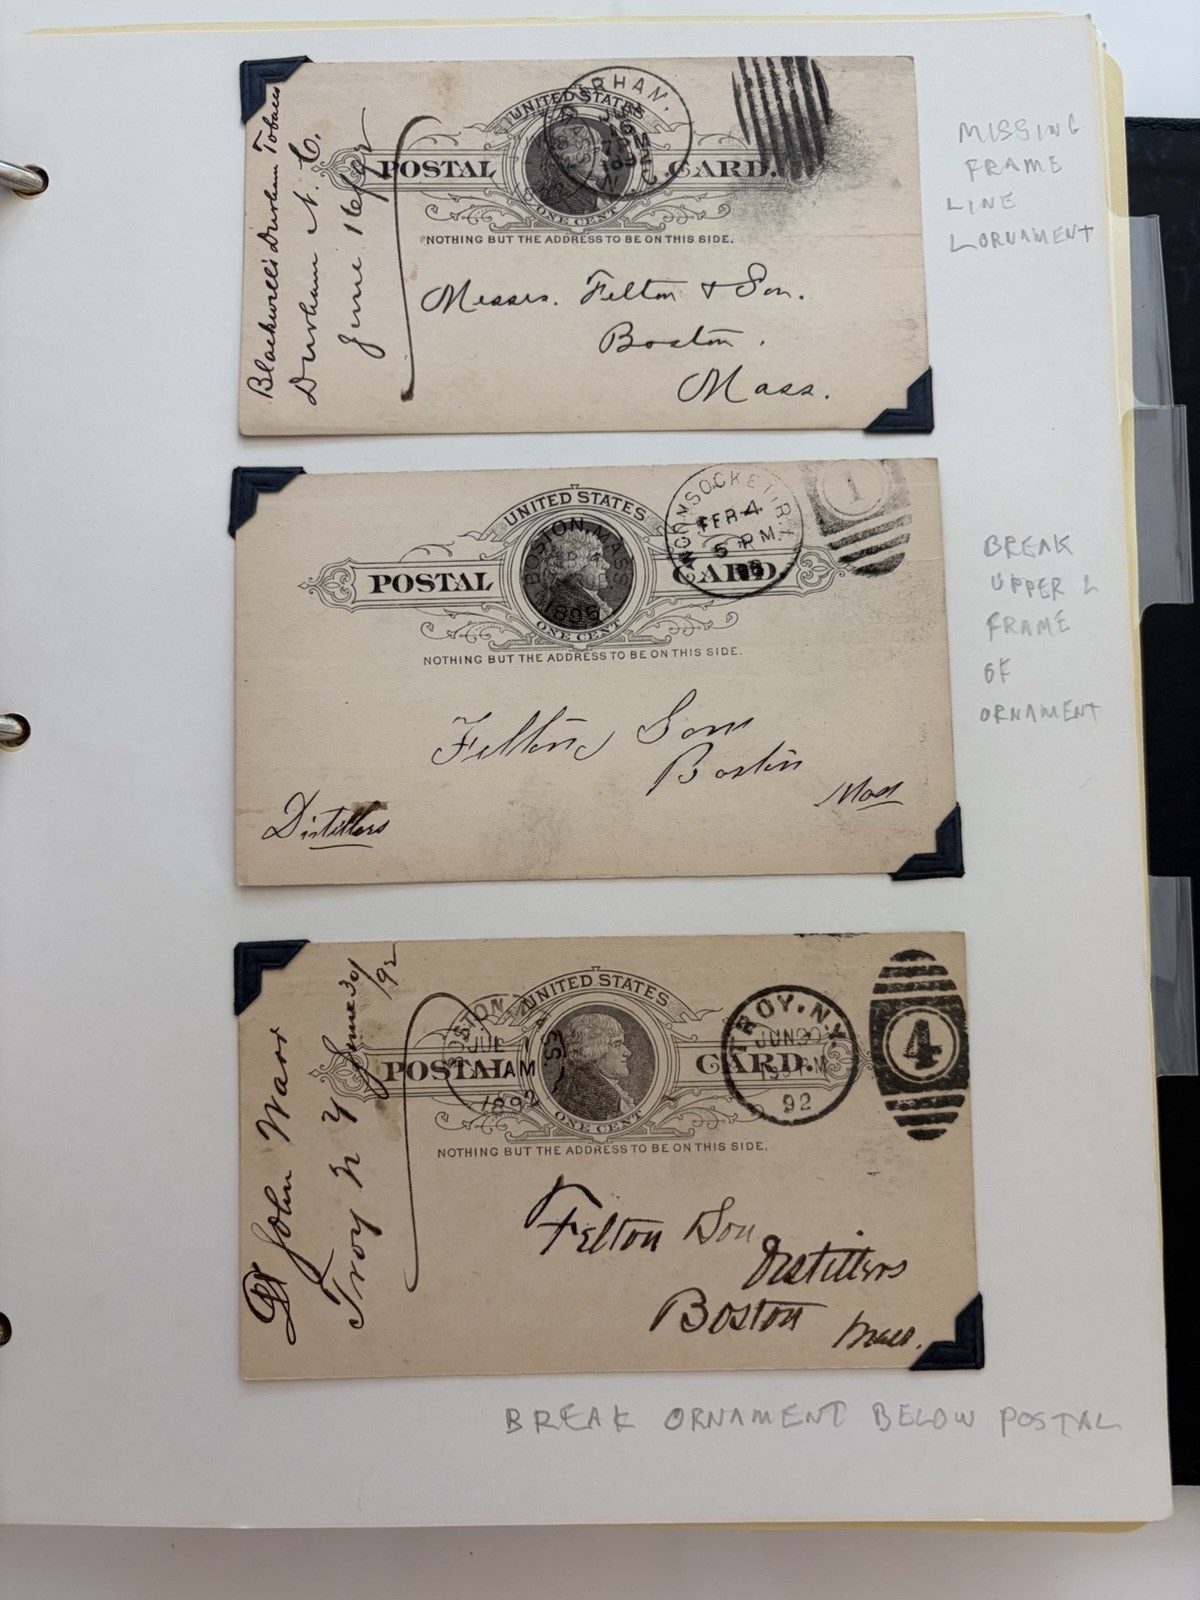 Blackwell's Durham Tobacco
Durham N. C.
June 16/92
UNITED STATES
POSTAL CARD.
ONE CENT
NOTHING BUT THE ADDRESS TO BE ON THIS SIDE.
Messrs. Felton & Son.
Boston.
Mass.
MISSING
FRAME
LINE
L ORNAMENT
UNITED STATES
POSTAL CARD.
ONE CENT
NOTHING BUT THE ADDRESS TO BE ON THIS SIDE.
BOSTON, MASS
1896
WOONSOCKET, R.I.
FEB 4
5 PM
1
Felton Sons
Boston
Mass
Distillers
BREAK
UPPER L
FRAME
OF
ORNAMENT
John Warr
Troy N Y June 30/92
UNITED STATES
POSTAL CARD.
ONE CENT
NOTHING BUT THE ADDRESS TO BE ON THIS SIDE.
BOSTON
JUL
1 AM
1892
TROY, N.Y.
JUN 30
PM
92
4
Felton Son
Distillers
Boston
Mass.
BREAK ORNAMENT BELOW POSTAL